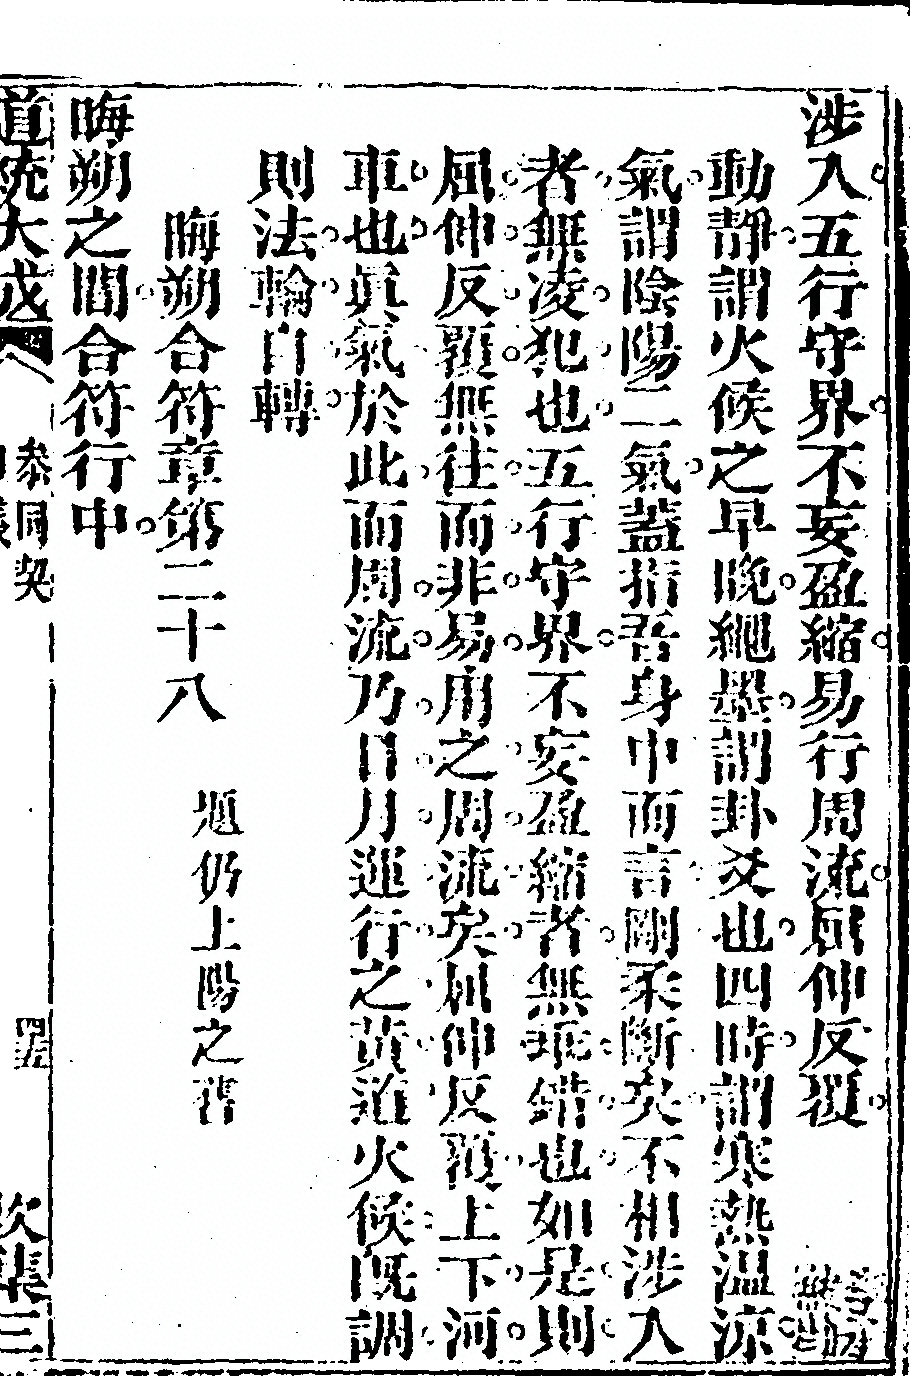 涉入五行守界不妄盈縮易行周流屈伸反覆
動靜謂火候之早晚繩墨謂卦爻也四時謂寒熱溫涼
氣謂陰陽二氣蓋指吾身中而言剛柔斷矣不相涉入
者無凌犯也五行守界不妄盈縮者無乖錯也如是則
屈伸反覆無往而非易用之周流矣屈伸反覆上下河
車也眞氣於此而周流乃日月運行之黃道火候旣調
則法輪自轉
晦朔合符章第二十八
題仍上陽之舊
晦朔之間合符行中
道統大成
參同契
四五
坎集三